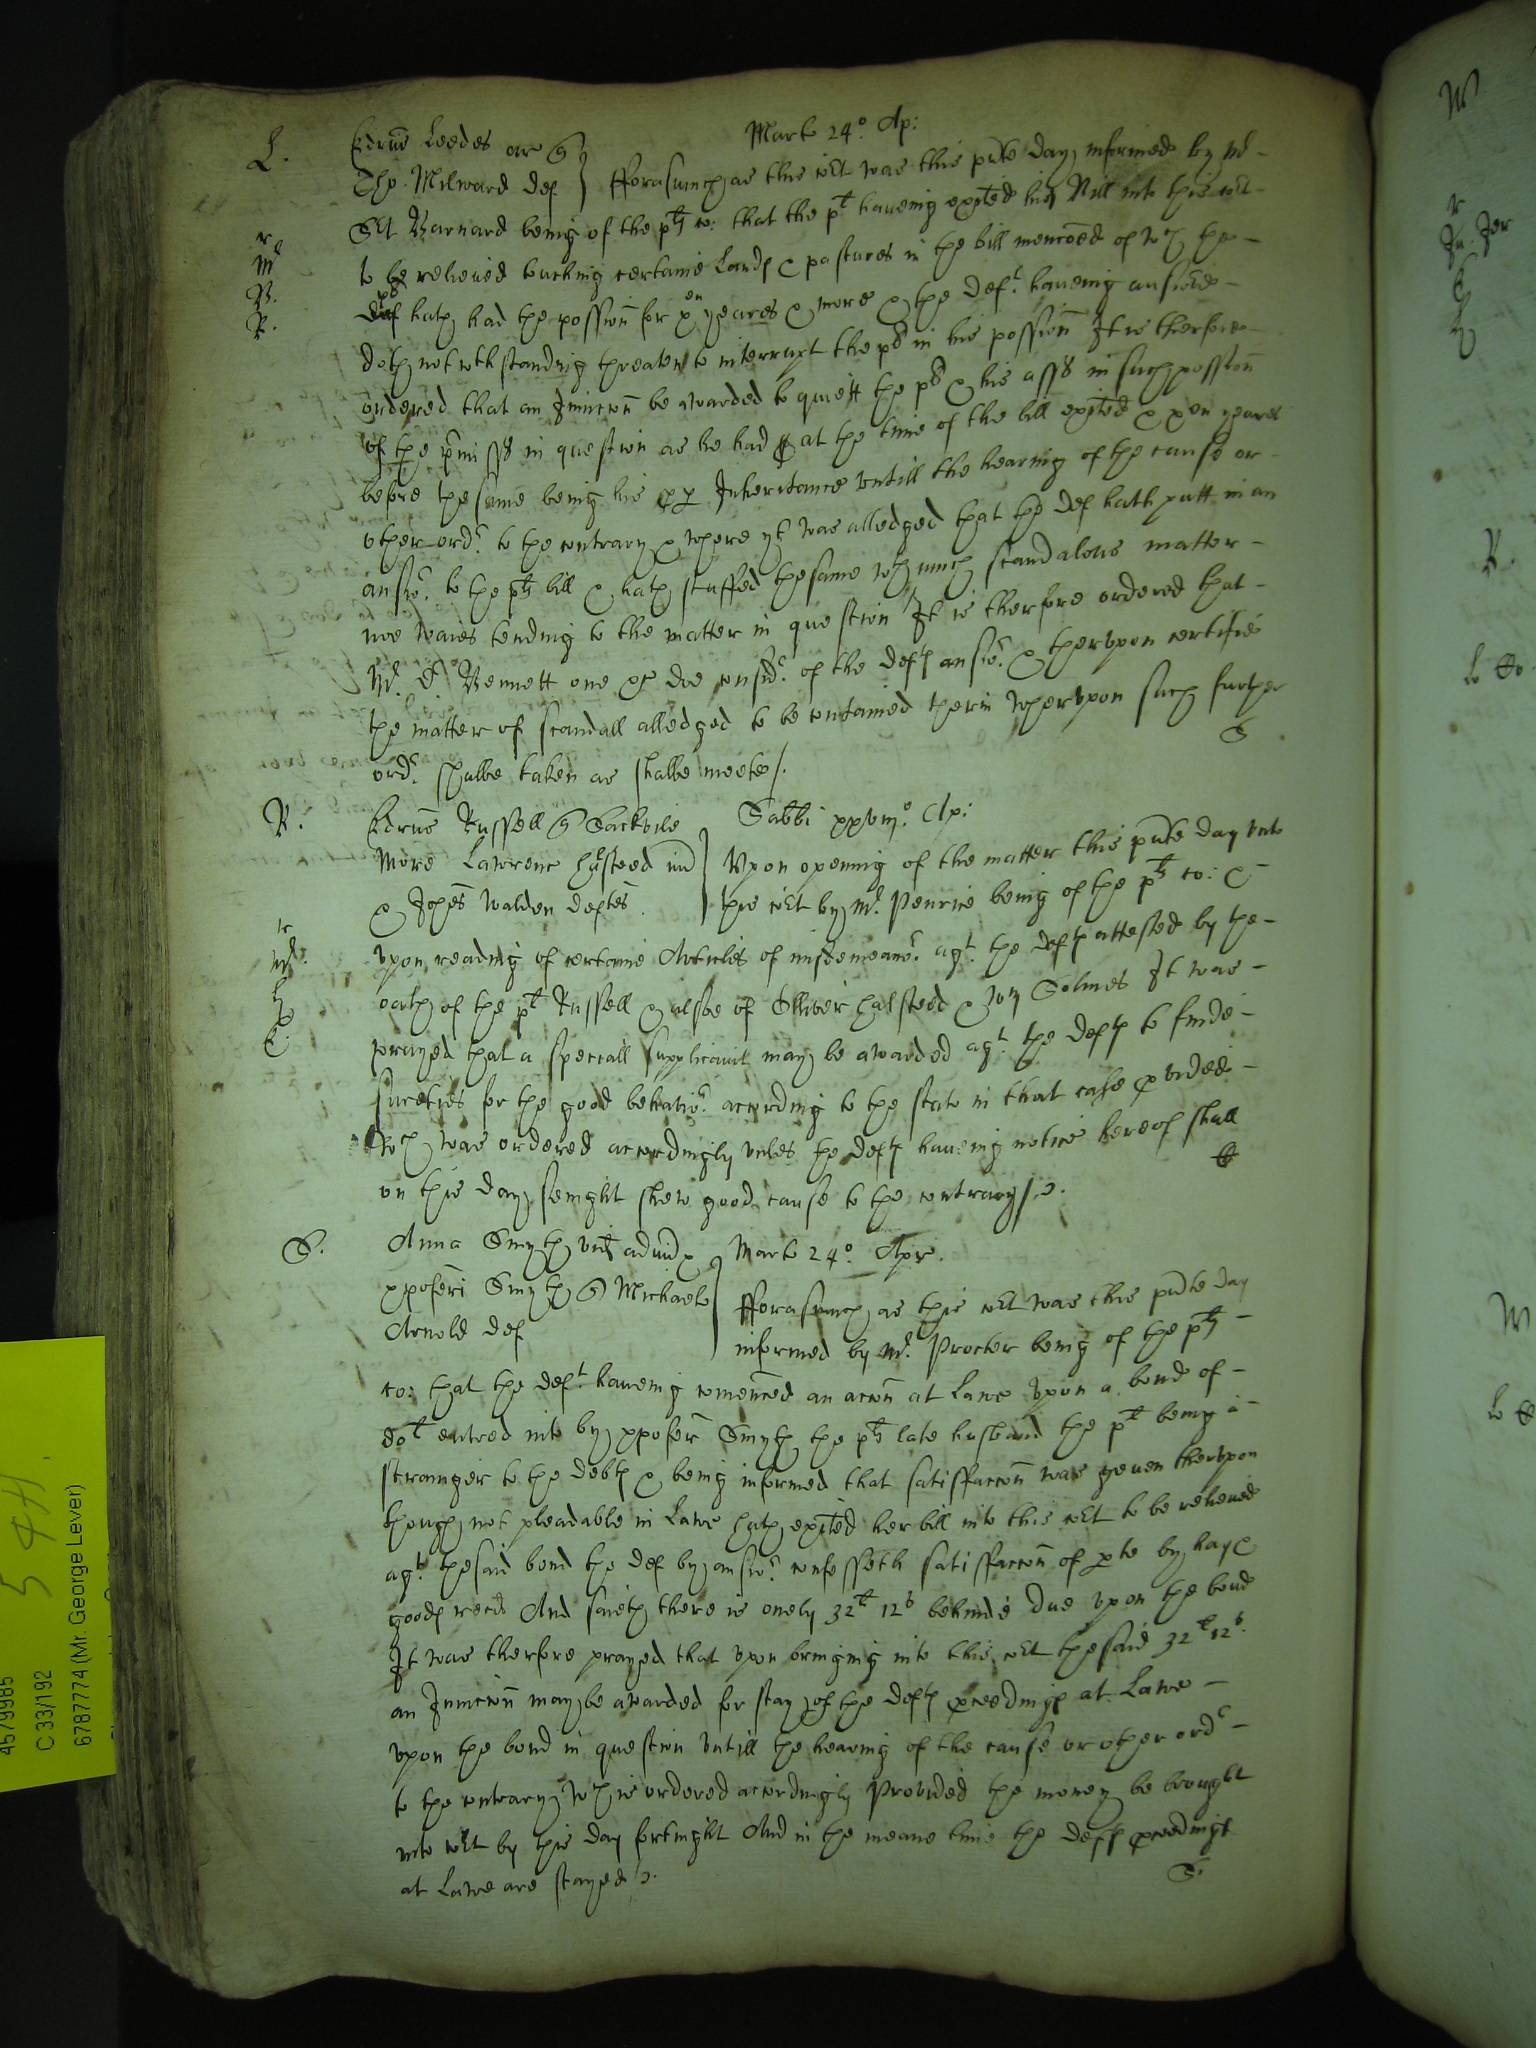 L. Edrus Leedes ar q Marte 24º. Ap:
Tho. Milward def } fforasmuch as this Co:rt was this pnte day informed by Mr
Sergt Barnard being of the plts co: that the plt haveing exited his Bill into this Co:rt
to be relieved touching certaine Lands & pastures in the bill menconed of wch the
plt hath had the possion for xen yeares & more & the Deft. haveing answered
doth notwthstanding threaten to interrupt the plt in his possion It is therfore
ordered that an Iniuncon be awarded to quiett the plt & his asss in such possion
of the pmisses in question as he had at the time of the bill exited & xen yeares
before the same being his pp Inheritance untill the hearing of the cause or
other ordr. to the contrary & where yt was alledged that the Def hath putt in an
answr. to the plts bill & hath stuffed the same wth much scandalous matter
noe waies tending to the matter in question It is therfore ordered that
Mr. Dr Bennett one &c doe considr. of the Defts answr. & therupon certifie
the matter of scandall alledged to be contained therin wherupon such further
ordr. shalbe taken as shalbe meete/.
R. Edrus Russell q Sackvile Sabbi xxviijº. Ap:
More Lawrenc Halsteed iun } Upon opening of the matter this pnte day unto
& Johes Walden deftes. this Co:rt by Mr. Penrice being of the plts co: &
upon reading of certaine Articles of misdemeanr. agt. the Defts attested by the
oath of the plt Russell & alsoe of Olliver Halsteed & Solmes It was
prayed that a speciall supplicavit may be awarded agt. the Defts to finde
sureties for the good behavior. according to the state in that case pvided
wch was ordered accordingly unles the Defts haveing notice hereof shall
on this day senight shew good cause to the contrary/.
S. Anna Smyth vid admid Marte 24º. Apr.
xpoferi Smyth q Michaele } fforasmuch as this Co:rt was this pnte day
Arnold def informed by Mr. Procter being of the plts
co: that the Deft. haveing comenced an accon at Lawe upon a bond of
80l entred into by xpofer Smyth the plts late husband the plt being a
straunger to the debts & being informed that satisfaccon was geven therupon
though not pleadable in Lawe hath exited her bill into this Co:rt to be relieved
agt. the said bond the Def by answr. confesseth satisfaccon of pte by hay &
goods reced And saieth there is onely 32l 12s behinde due upon the bond
It was therfore prayed that upon bringing into this Co:rt the said 32l 12s.
an Iniuncon may be awarded for stay of the Defts pceedings at Lawe
upon the bond in question untill the hearing of the cause or other ordr
to the contrary wch is ordered accordingly Provided the money be brought
into Co:rt by this day fortnight And in the meane time the Defts pceedings
at Lawe are stayed/.
S.
54H.
4579985
C 33/192
6787774 (Mr. George Lever)